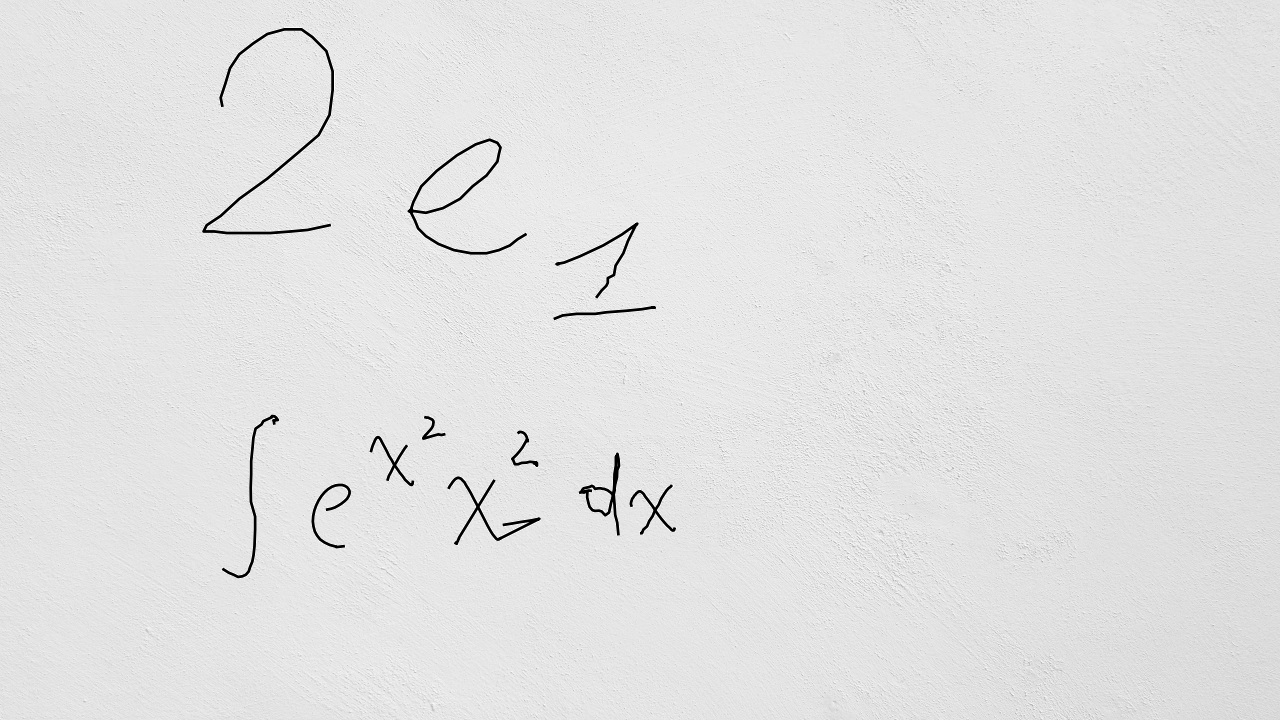 2e₁
∫ e^{x^2} x^2 dx